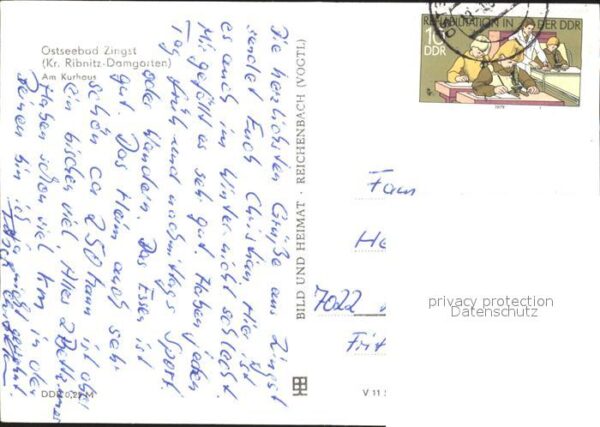 Ostseebad Zingst
(Kr. Ribnitz-Damgarten)
Am Kurhaus
Die herzlichsten Grüße aus Zingst
sendet Euch Christian. Hier ist
es auch im Winter nicht schlecht.
Mir gefällt es sehr gut. Haben jeden
Tag früh und nachmittags Sport
oder Wandern. Das Essen ist
gut. Das Heim auch sehr
schön ca 250 Mann ist aber
ein bischen viel. Alles 2 Bettzimmer
Haben schon viel km in den
Beinen bin ich ja nicht gewohnt.
DDR 0,25 M
BILD UND HEIMAT · REICHENBACH (VOGTL)
V 11
REHABILITATION IN DER DDR
10
DDR
1978
Fam
He
7022
Frit
privacy protection
Datenschutz